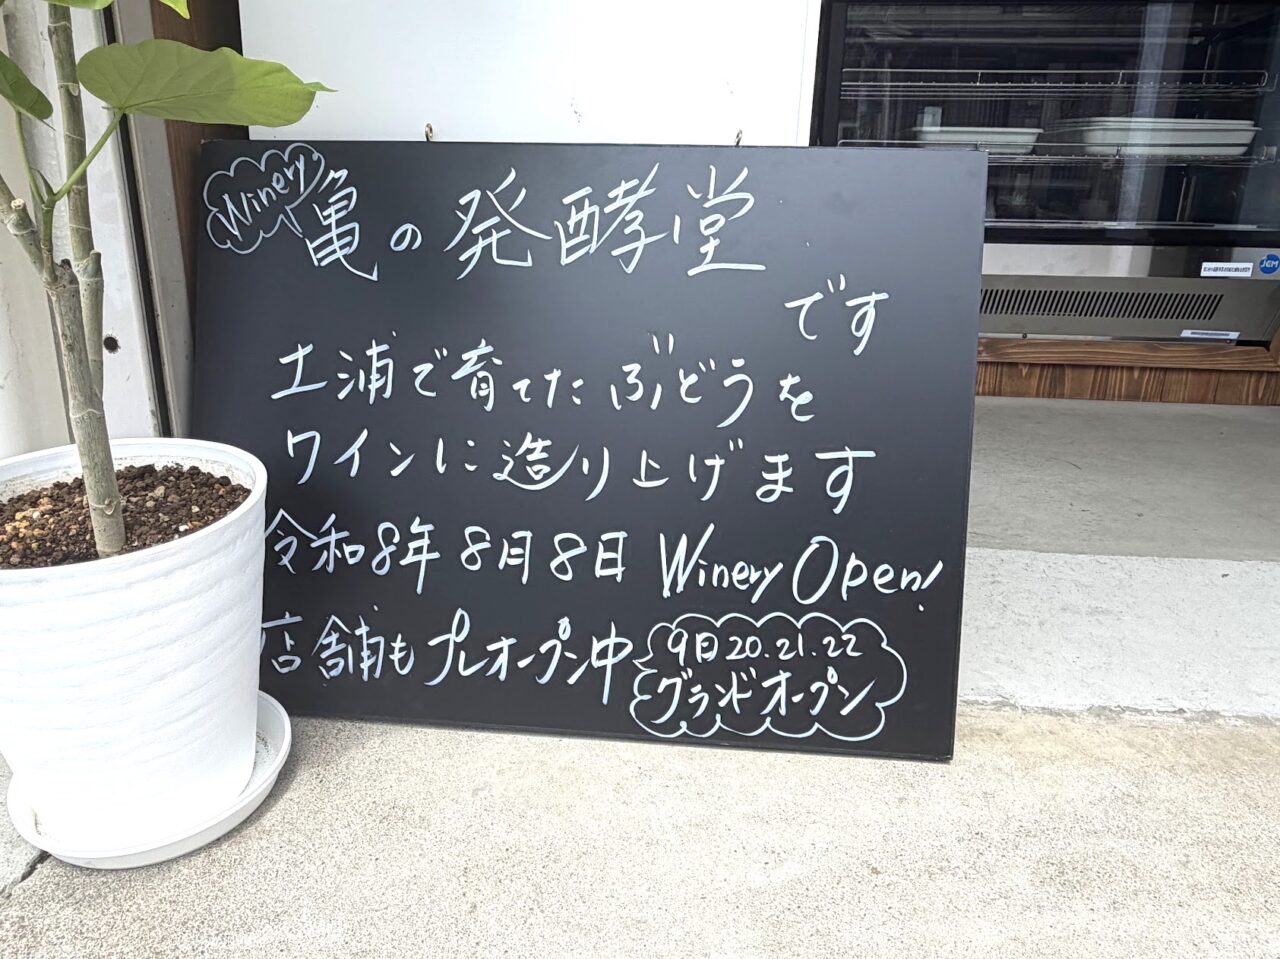 Winery
亀の発酵堂
です
土浦で育てたぶどうを
ワインに造り上げます
令和8年8月8日 Winery Open!
店舗もプレオープン中
9日20.21.22
グランドオープン
JCM